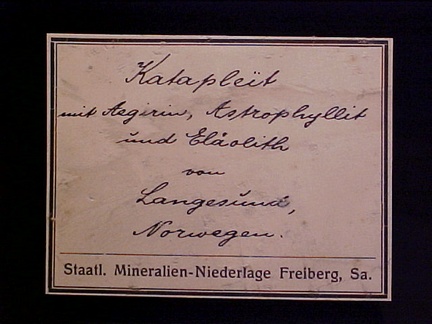 Katapleït
mit Aegirin, Astrophyllit
und Eläolith
von
Langesund,
Norwegen.
Staatl. Mineralien-Niederlage Freiberg, Sa.